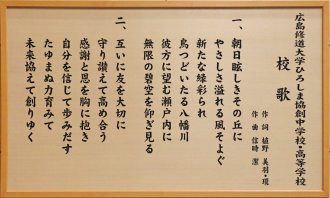 広島修道大学ひろしま協創中学校・高等学校
校歌
作詞 植野 美羽・環
作曲 信時 潔
一、朝日眩しきその丘に
やさしさ溢れる風そよぐ
新たな緑彩られ
鳥つどいたる八幡川
彼方に望む瀬戸内に
無限の碧空を仰ぎ見る
二、互いに友を大切に
守り讃えて高め合う
感謝と恩を胸に抱き
自分を信じて歩みだす
たゆまぬ力育みて
未来協えて創りゆく